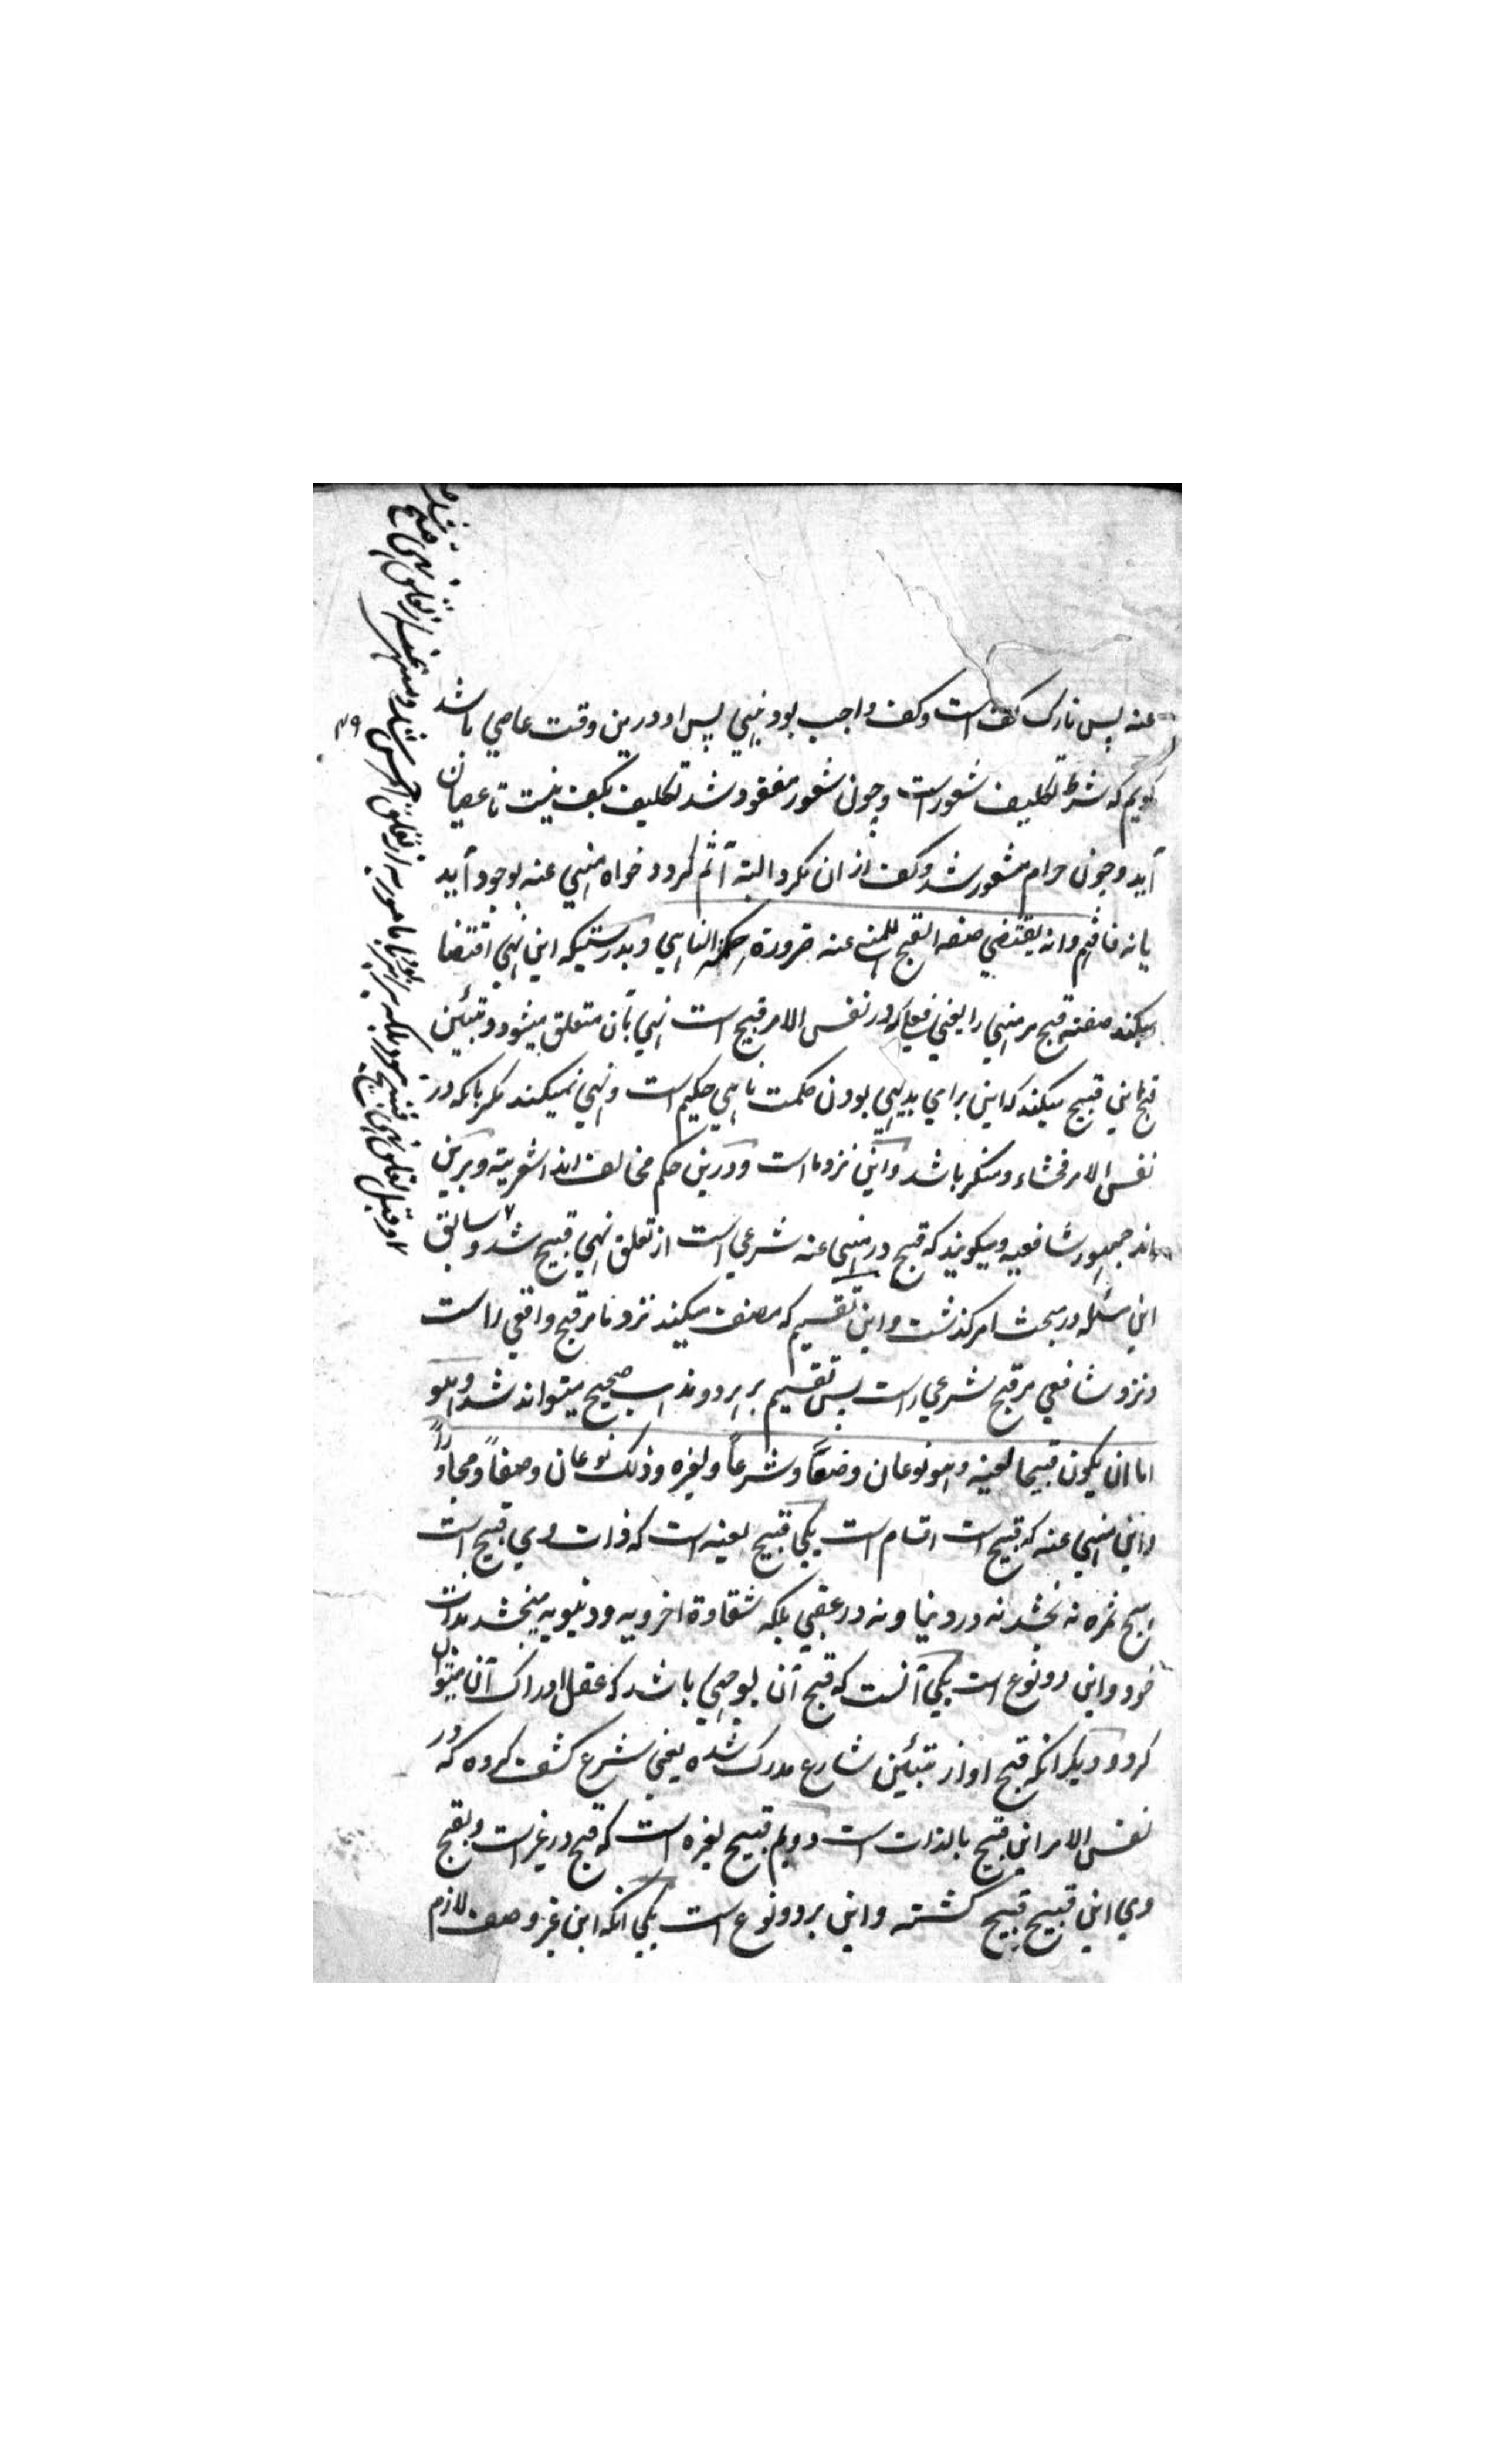 عنه پس تارک کف است و کف واجب بود بنهی پس او درین وقت عاصی باشد
گویم که شرط تکلیف شعور است و چون شعور مفقود شد تکلیف بکف نیست تا عصیان
آید و چون حرام مشعور شد و کف ازان نکرد البته آثم گردد خواه منهی عنه بوجود آید
یا نه فافهم وانه یقتضی صفة القبح للمنهی عنه ضرورة حکمة الناهی و بدرستیکه این نهی اقتضا
میکند صفة قبح مر منهی را یعنی فعلی که در نفس الامر قبیح است نهی بآن متعلق میشود و تبئین
قبح این قبیح میکند که این برای بدیهی بودن حکمت ناهی حکیم است و نهی نمیکند مگر بآنکه در
نفس الامر فحشاء و منکر باشد و این نزد ما است و درین حکم مخالف اند اشعریة و برین
اند جمهور شافعیه و میگویند که قبح در منهی عنه شرعی است از تعلق نهی قبیح شد و سابق
این مسئله در مبحث امر گذشت و این تقسیم که مصنف میکند نزد ما مر قبح واقعی راست
و نزد شافعی مر قبح شرعی راست پس تقسیم بر هر دو مذهب صحیح میتواند شد وهو
اما ان یکون قبیحا لعینه وهو نوعان وضعًا وشرعًا ولغیره وذلک نوعان وصفًا ومجاورًا
و این منهی عنه که قبیح است اقسام است یکی قبیح لعینه است که ذات وی قبیح است
هیچ ثمره نه بخشد نه در دنیا و نه در عقبی بلکه شقاوة اخرویه و دنیویه میبخشد بذات
خود و این دو نوع است یکی آنست که قبح آن بوجهی باشد که عقل ادراک آن میتوان
کرد و دیگر آنکه قبح او از تبئین شارع مدرک شده یعنی شرع کشف کرده که در
نفس الامر این قبیح بالذات است دویم قبیح لغیره است که قبح در غیر است و بقبح
وی این قبیح قبیح گشته و این بر دو نوع است یکی آنکه این غیر وصف لازم